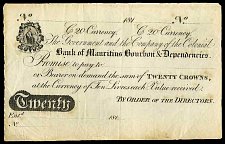 181 No
C 20 Currency. C 20 Currency.
The Government and the Company of the Colonial
Bank of Mauritius Bourbon & Dependencies.
Promise to pay to
or Bearer on demand the sum of TWENTY CROWNS,
at the Currency of Ten Livres each Value received.
Twenty
BY ORDER OF THE DIRECTORS.
Entd. 181
No